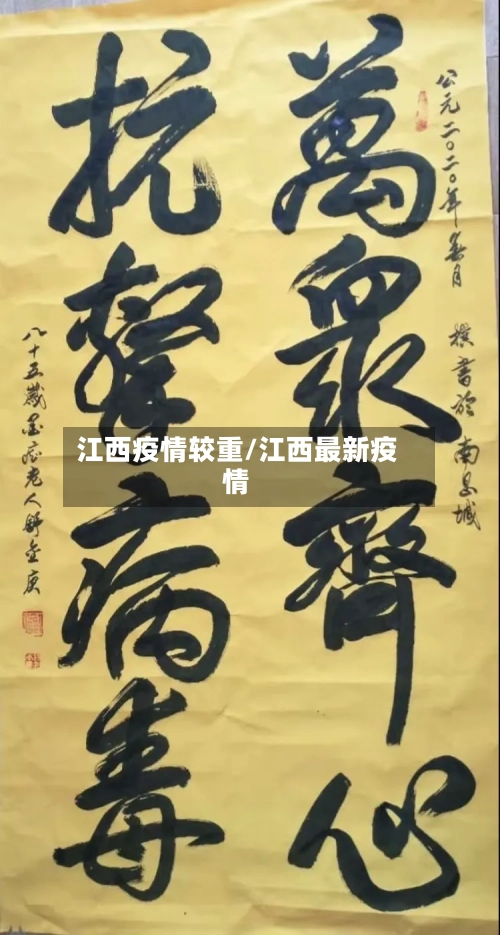 公元二〇二〇年春月 樸書於南昌城
萬衆齊心
抗擊病毒
八十五歲墨痴老人舒金庚
江西疫情较重/江西最新疫
情